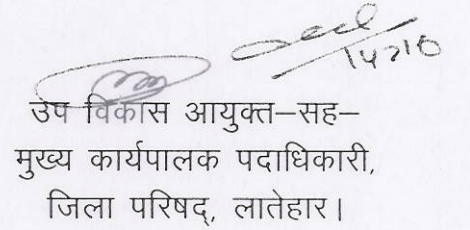 उप विकास आयुक्त–सह–
मुख्य कार्यपालक पदाधिकारी,
जिला परिषद्, लातेहार।